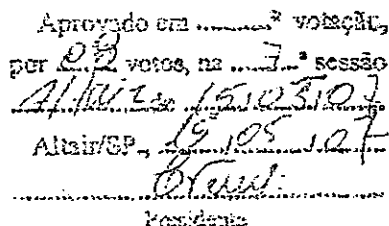 Aprovado em ............ª votação,
por 08 votos, na ..... 7 ..ª sessão
15,03,07
Altair/SP., 15,05,07
Presidente